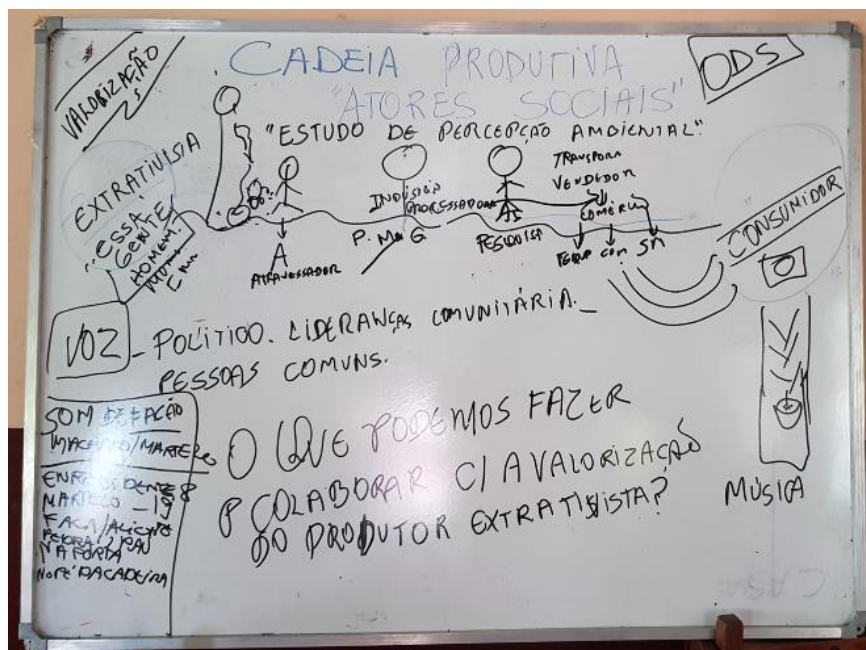 VALORIZAÇÃO
CADEIA PRODUTIVA
"ATORES SOCIAIS"
ODS
"ESTUDO DE PERCEPÇÃO AMBIENTAL"
EXTRATIVISTA
"ESSA
GENTE
HOMEM
A
ATRAVESSADOR
INDÚSTRIA
P. M G
PESQUISA
VENDEDOR
CONSUMIDOR
VOZ - POLÍTICO. LIDERANÇAS COMUNITÁRIA. -
PESSOAS COMUNS.
SOM DE FACÃO
MACHADO/MARTELO
MARTELO - 15
FACA/ALICATE
PEDRA / PAU
NA PORTA
NO PÉ DA CADEIRA
O QUE PODEMOS FAZER
P COLABORAR C/ A VALORIZAÇÃO
DO PRODUTOR EXTRATIVISTA?
MÚSICA